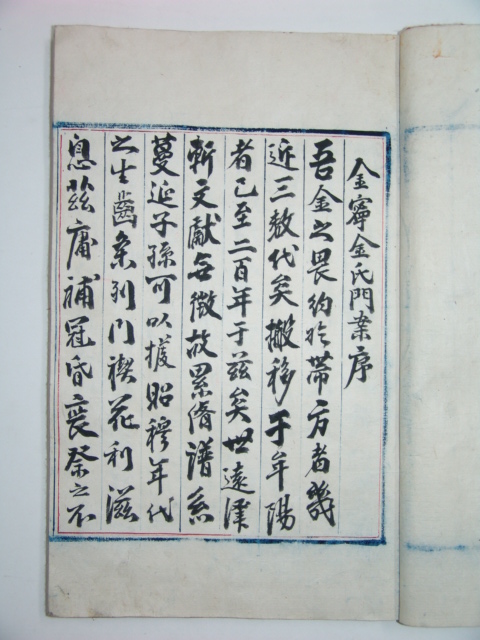 金寧金氏門案序
吾金之畏約於帶方者幾
近三數代矣搬移于牟陽
者已至二百年于玆矣世遠澤
斬文獻無徵故累脩譜系
蔓延子孫可以援昭穆年代
之生齒条列門禊花利滋
息玆庸補冠昏喪祭之不